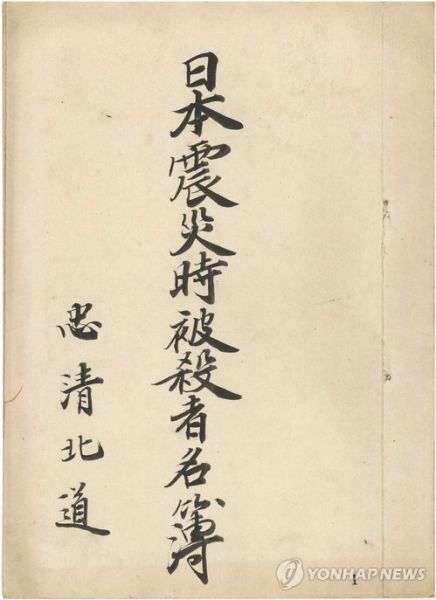 日本震災時被殺者名簿
忠清北道
1
YONHAPNEWS